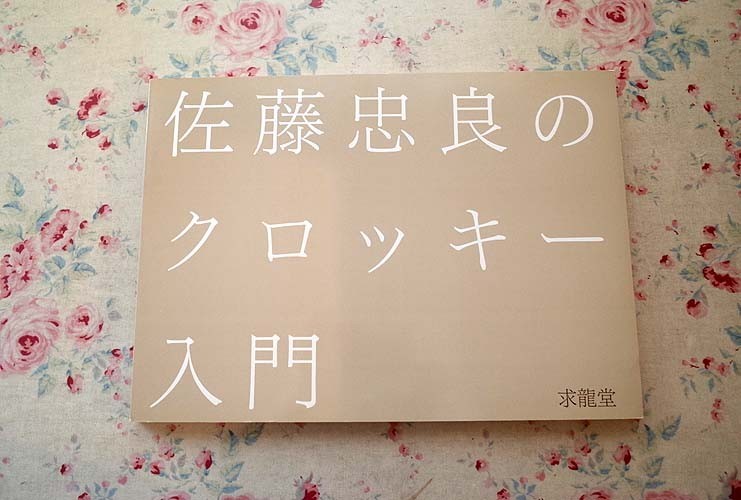 佐藤忠良の
クロッキー
入門
求龍堂